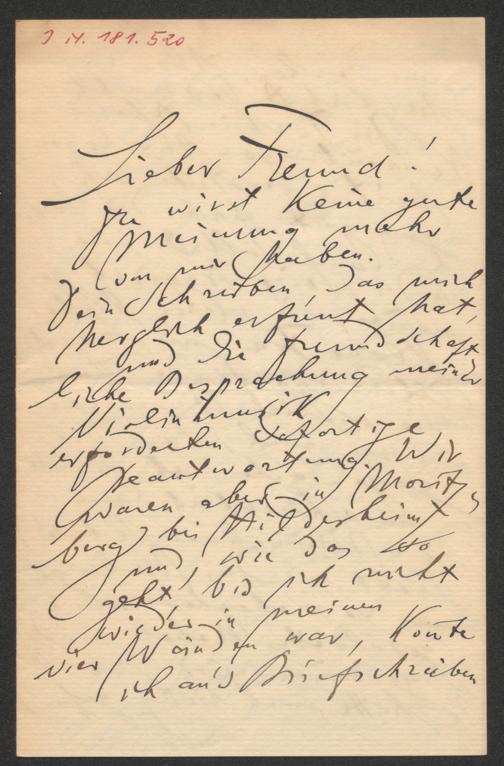 J. N. 181.520
Lieber Freund!
Du wirst keine gute
Meinung mehr
von mir haben.
Dein Schreiben, das mich
herzlich erfreut hat,
und die freundschaft-
liche Besprechung meiner
Violinmusik
erforderten sofortige
Beantwortung. Wir
waren aber in Moritz-
berg bei Hildesheim
und, wie das so
geht, bis ich nicht
wieder in meinen
vier Wänden war, konnte
ich an's Briefschreiben